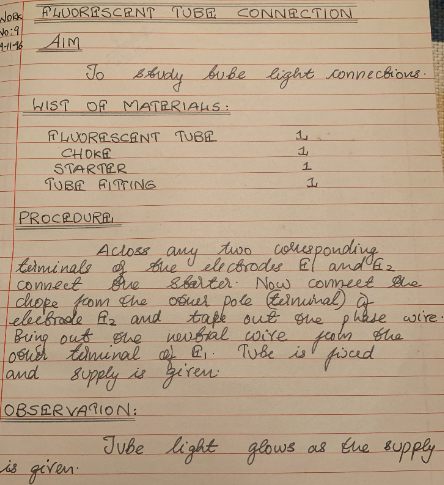 WORK
No: 9
FLUORESCENT TUBE CONNECTION
AIM
To study tube light connections.
LIST OF MATERIALS:
FLUORESCENT TUBE 1
CHOKE 1
STARTER 1
TUBE FITTING 1
PROCEDURE
Across any two corresponding
terminals of the electrodes E1 and E2
connect the starter. Now connect the
chope from the other pole (terminal) of
electrode E2 and take out the phase wire.
Bring out the neutral wire from the
other terminal of E1. Tube is fixed
and supply is given.
OBSERVATION:
Tube light glows as the supply
is given.